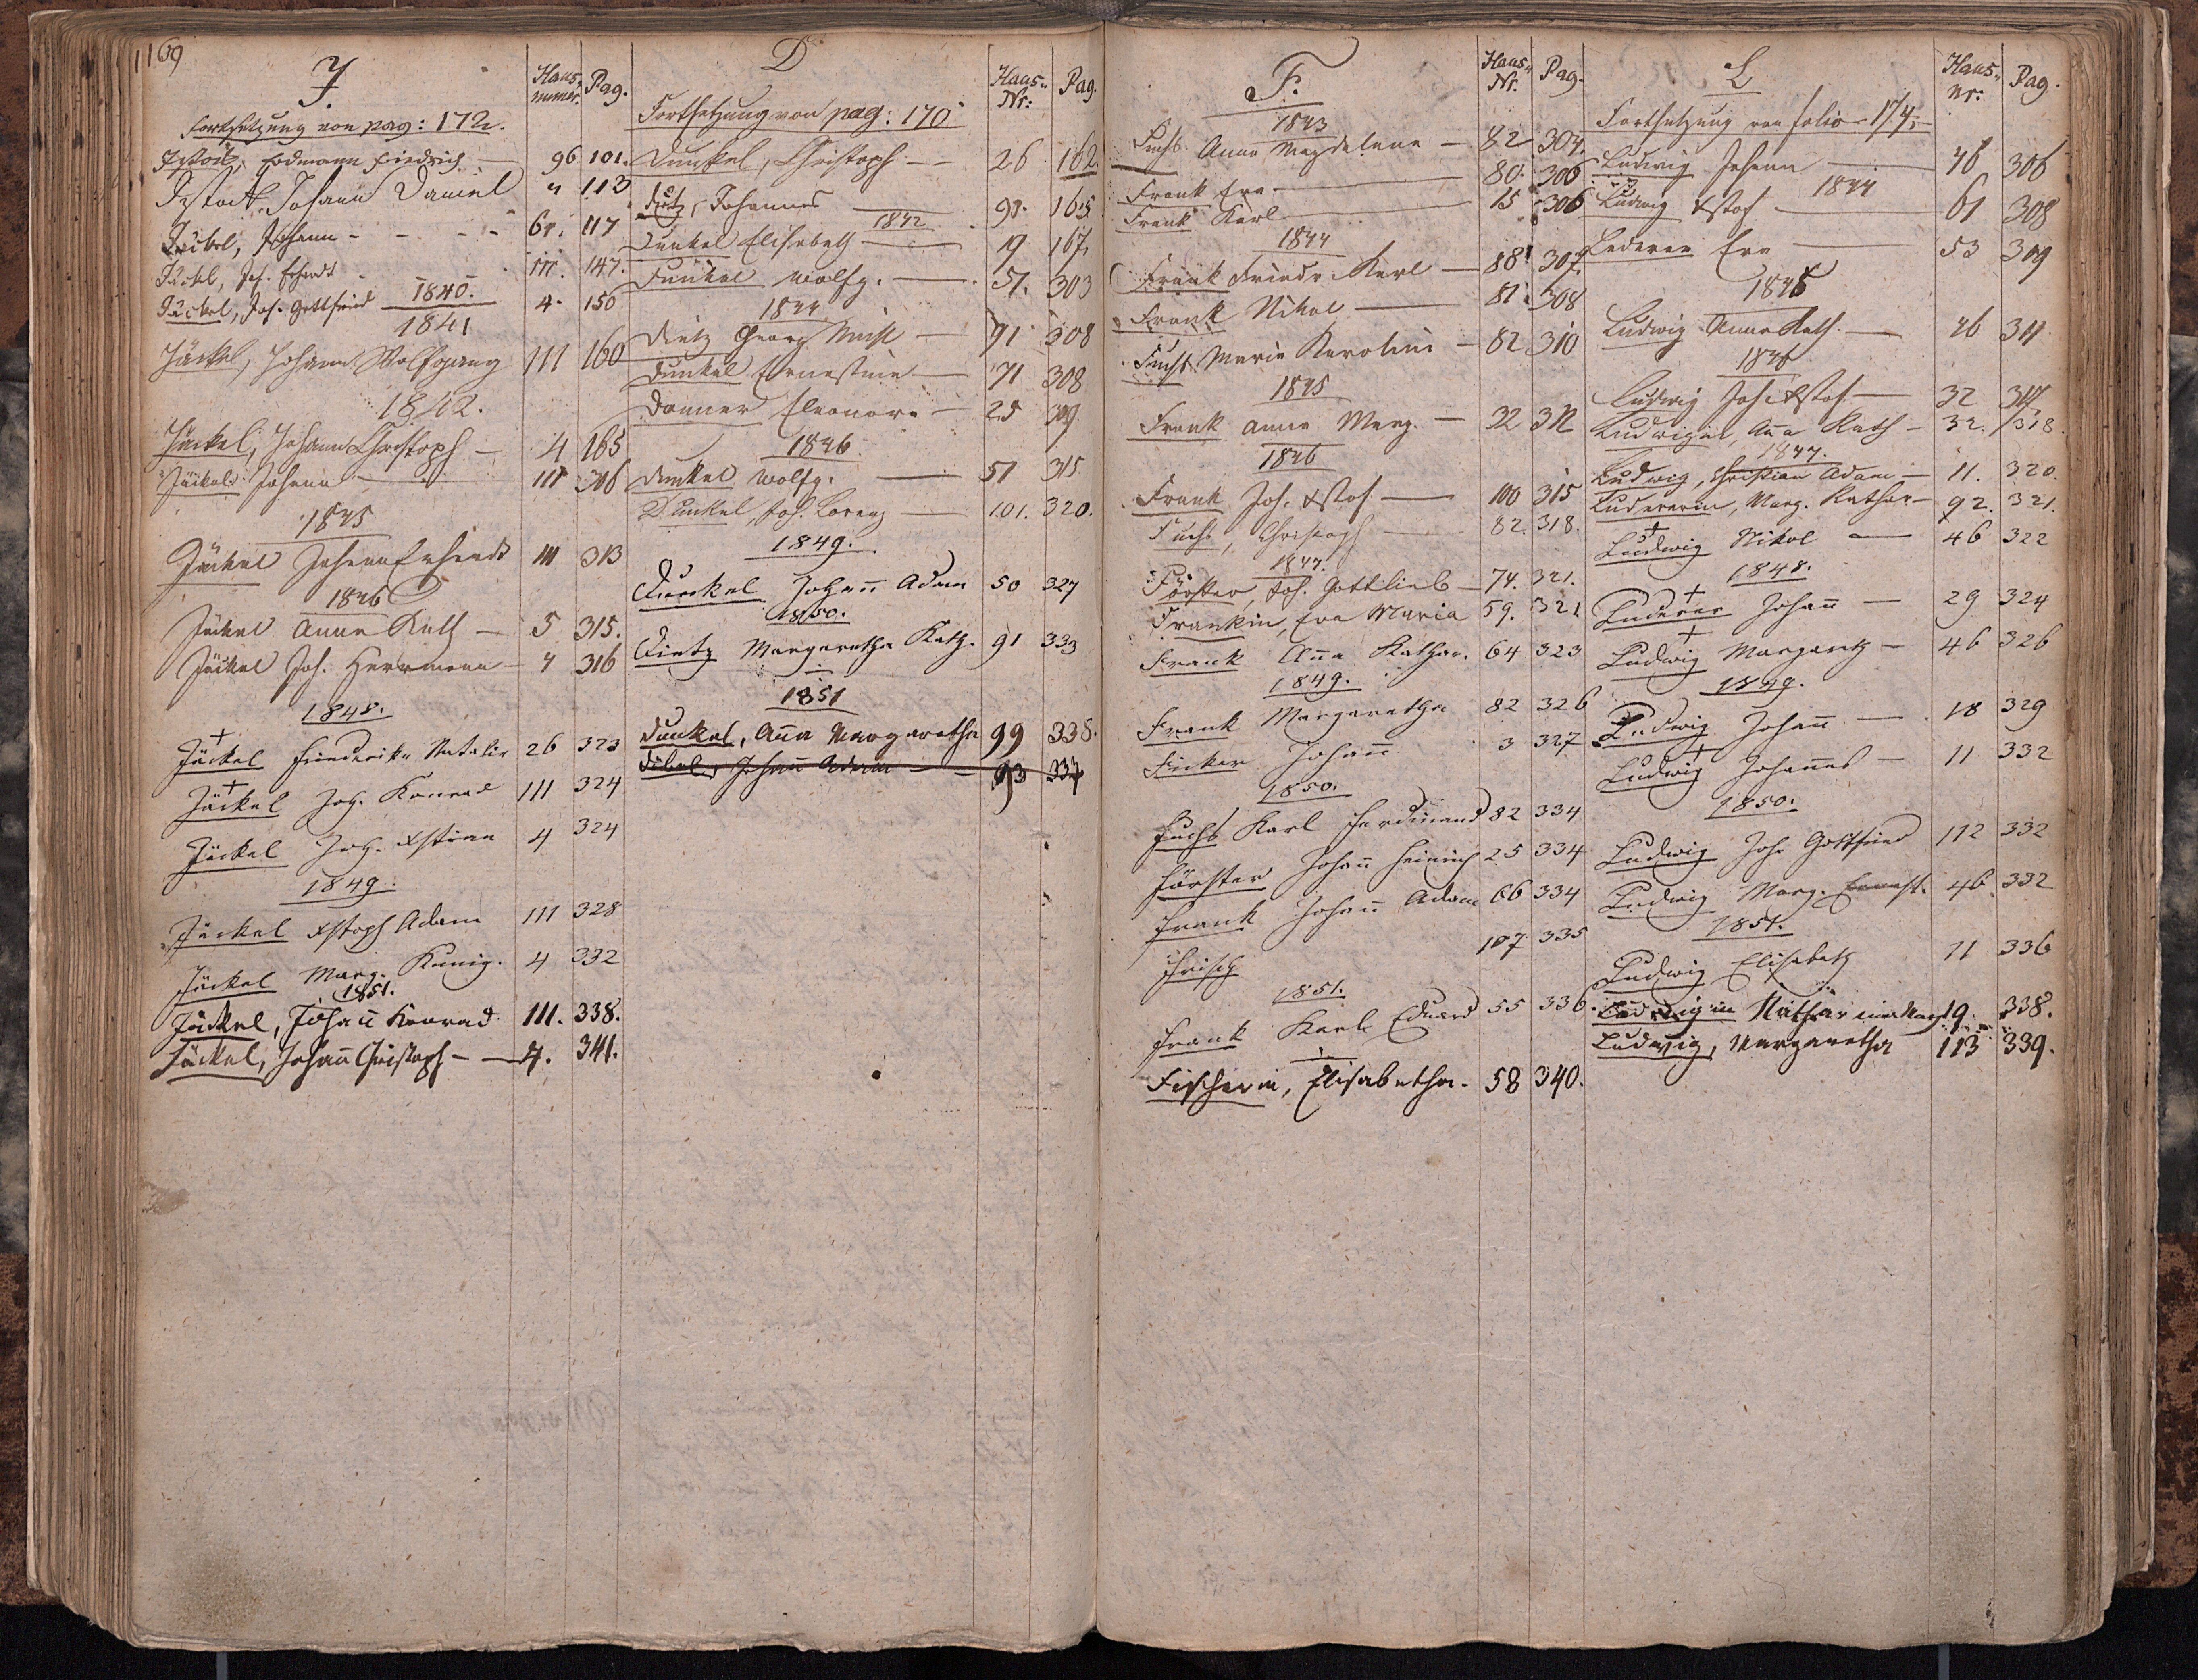 1169
J.
Haus-
numer.
Pag.
Fortsetzung von pag: 172.
Erdmann Friedrich 96 101.
Johann Daniel " 113
Johann - - - 61. 117
Jäckel, Joh. Erhardt 111. 147.
1840.
Jäckel, Joh. Gottfried 4. 150
1841
Jäckel, Johann Wolfgang 111 160
1842.
Jäckel, Johann Christoph — 4 165
Jäckel Johann — 111 306
1845
Jäckel Johann Erhardt 111 313
1846
Jäckel Anna Kath — 5 315.
Jäckel Joh. Herrmann — 4 316
1848.
+
Jäckel Friederike Natalie 26 323
+
Jäckel Joh. Konrad 111 324
Jäckel Joh. Xstian 4 324
1849.
Jäckel Xstoph Adam 111 328
Jäckel Marg. Kunig. 4 332
1851.
Jäckel, Johann̄ Konrad 111. 338.
Jäckel, Johan̄ Christoph — — 4. 341.
D
Haus-
Nr:
Pag.
Fortsetzung von pag: 170
Dunkel, Christoph — 26 162.
Johannes 91. 165
1842
Dunkel Elisabeth — 19 167,
Dunkel Wolfg. — 51. 303
1844
Dietz Georg — 91 308
Dunkel Ernestine — 71 308
Danner Eleonore — 25 309
1846
Dunkel Wolfg. — 51 315
Dunkel, Joh. Lorenz — 101. 320.
1849.
Dunkel Johan̄ Adam 50 327
1850.
Dietz Margaretha Kath. 91 333
1851
Dunkel, Anna Margaretha 99 338.
Johan̄ Adam — 93 337
F.
Haus-
Nr.
Pag.
1843
Fuchs Anna Magdalena — 82 304.
Frank Eva — 80. 306
Frank Karl — 15 306
1844
Frank Friedr. Karl — 88 307.
Frank Nikol — 81 308
Fuchs Maria Karolina — 82 310
1845
Frank Anna Marg. — 32 312
1846
Frank Joh. Xstof — 100 315
Fuchs, Christoph — 82. 318.
1847.
Förster, Joh. Gottlieb — 74. 321.
Frankin, Eva Maria 59. 321
Frank An̄a Kathar. 64 323
1849.
Frank Margaretha 82 326
Ficker Johan̄ 3 327
1850.
Fuchs Karl Ferdinand 82 334
Förster Johan̄ Heinrich 25 334
Frank Johan̄ Adam 66 334
Frisch 107 335
1851.
Frank Karl Eduard 55 336.
Fischerin, Elisabetha. 58 340.
L
Haus-
Nr:
Pag.
Fortsetzung von folio - 174,
Ludwig Johann — 46 306
1844
Ludwig Xstof — 61 308
Lederer Eva — 53 309
1845
Ludwig Anna Kath. — 46 311
1846
Ludwig Joh. Xstof — 32 317
Ludwigin, An̄a Kath — 32. 318.
1847.
Ludwig, Christian Adam — 11. 320.
Ludererin, Marg. Kathar — 92. 321.
+
Ludwig Nikol — 46 322
1848.
+
Luderer Johan̄ — 29 324
+
Ludwig Margareth — 46 326
1849.
Ludwig Johan̄ — 18 329
+
Ludwig Johan̄es — 11 332
1850.
Ludwig Joh. Gottfried 112 332
Ludwig Marg. Ernest. 46 332
1851.
Ludwig Elisabeth 11 336
Ludwigin Katharina Marg 19. 338.
Ludwig, Margaretha 113 339.